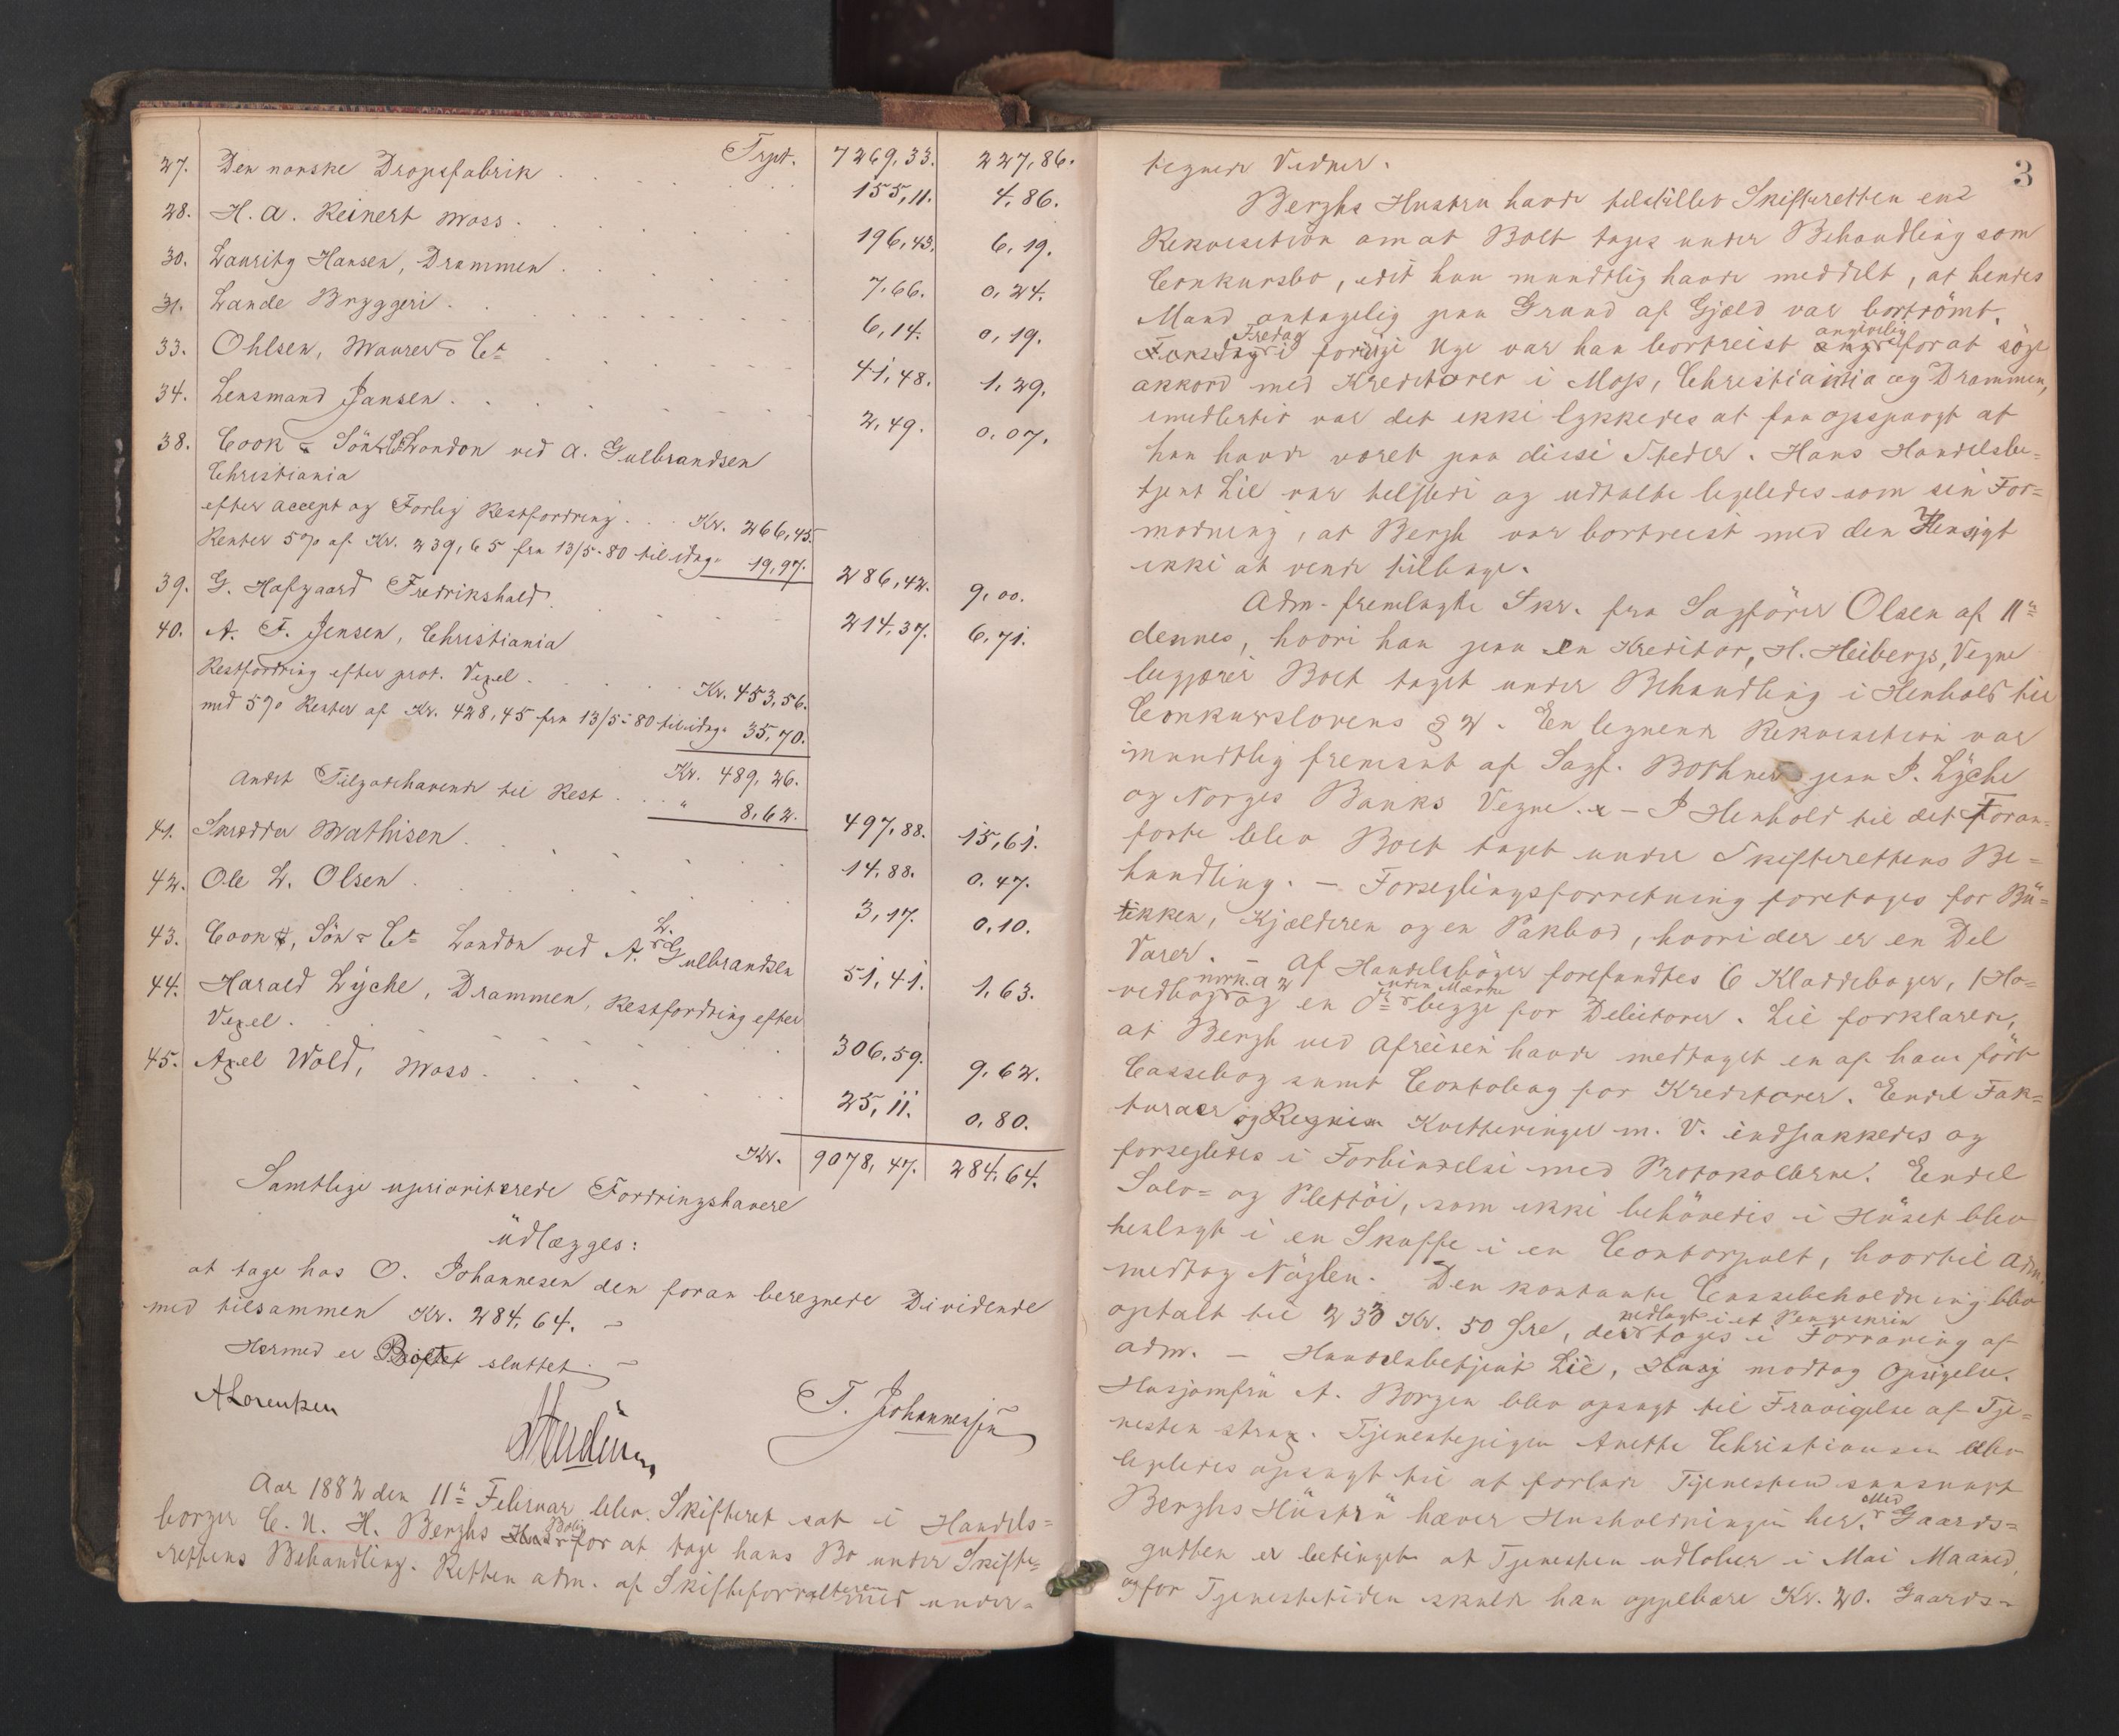 Trpt. 7269,33. 227,86.
27. Den norske Dropsfabrik . . . 155,11. 4,86.
28. H. A. Reinert Moss . . . 196,43. 6,19.
30. Lauritz Hansen, Drammen . . . 7,66. 0,24.
31. Lande Bryggeri . . . 6,14. 0,19.
33. Ohlsen, Maurer & Co . . . 41,48. 1,29.
34. Lensmand Jansen . . . 2,49. 0,07.
38. Cook & Sön & Co London ved A. Gulbrandsen
Christiania
efter accept og Forlig Restfordring . . . Kr. 266,45.
Renter 5% af Kr. 239,65 fra 13/5-80 til idag" 19,97. 286,42. 9,00.
39. G. Hafgaard Fredrikshald . . . 214,37. 6,71.
40. A. F. Jensen, Christiania
Restfordring efter prot. Vexel . . . Kr. 453,56.
med 5% Renter af Kr. 428,45 fra 13/5-80 til idag" 35,70.
Kr. 489,26.
Andet Tilgodehavende til Rest . . . " 8,62. 497,88. 15,61.
41. Skrædder Mathisen . . . 14,88. 0,47.
42. Ole L. Olsen . . . 3,17. 0,10.
43. Cook, Sön & Co London ved A. L. Gulbrandsen 51,41. 1,63.
44. Harald Lyche, Drammen, Restfordring efter
Vexel . . . 306,59. 9,62.
45. Axel Wold, Moss . . . 25,11. 0,80.
Kr. 9078,47. 284,64.
Samtlige uprioriterede Fordringshavere
üdlægges:
at tage hos O. Johannesen den foran beregnede Dividende
med tilsammen Kr. 284,64. –
Hermed er Boet sluttet. –
ALorentzen
T. Johannessen
Aar 1882 den 11te Februar blev Skifteret sat i Handels=
borger C. N. H. Berghs Bolig for at tage hans Bo under Skifte=
rettens Behandling. Retten adm. af Skifteforvalteren med under=
3
tegnede Vidner.
Berghs Hustru havde tilstillet Skifteretten end
Rekvisition om at Boet toges under Behandling som
Conkursbo, idet hun mundtlig havde meddelt, at hendes
Mand antagelig paa Grund af Gjæld var bortrömt.
Fredag i forrige Uge var han bortreist angivelig for at söge
akkord med Kreditorer i Moss, Christiania og Drammen,
imidlertid var det ikke lykkedes at faa opspurgt at
han havde været paa disse Steder. Hans Handelsbe=
tjent Lie var tilstede og udtalte ligeledes som sin For=
modning, at Bergh var bortreist med den Hensigt
ikke at vende tilbage.
Adm. fremlagde Skr. fra Sagförer Olsen af 11te
dennes, hvori han paa en Kreditor, H. Heibergs, Vegne
begjærer Boet taget under Behandling i Henhold til
Conkurslovens § 2. En lignende Rekvisition var
mundtlig fremsat af Sagf. Bothner paa P. Lyche
og Norges Banks Vegne. – I Henhold til det Foran=
förte blev Boet taget under Skifterettens Be=
handling. – Forseglingsforretning foretoges for Bü=
tikken, Kjælderen og en Pakbod, hvori der er en Del
Varer. – Af Handelsböger forefandtes 6 Kladdeboger, 1 Ho=
vedbog mrk. a 2 og en do uden Mærke begge for Debitorer. Lie forklarer,
at Bergh ved Afreisen havde medtaget en af ham fört
Cassebog samt Contobog for Kreditorer. Endel Fak=
turaer og Regnin. Kvitteringer m. V. indpakkedes og
forsegledes i Forbindelse med Protokollerne. Endel
Sölv= og Plettöi, som ikke behövedes i Hüset blev
henlagt i en Skuffe i en Contorpult, hvortil Adm.
medtog Nöglen. Den kontante Cassebeholdning blev
optalt til 233 Kr. 50 Öre, der nedlagt i et Pengeskrin toges i Forvaring af
adm. – Handelsbetjent Lie, modtog Opsigelse.
Husjomfrü A. Borgen blev opsagt til Fravigelse af Tje=
nesten strax. Tjenestepigen Anette Christiansen blev
ligeledes opsagt til at forlade Tjenesten saasnart
Berghs Hüstrü hæver Husholdningen her. Med Gaards=
gutten er betinget at Tjenesten udlober i Mai Maaned,
og for Tjenestetiden skulde han oppebære Kr. 20. Gaards=